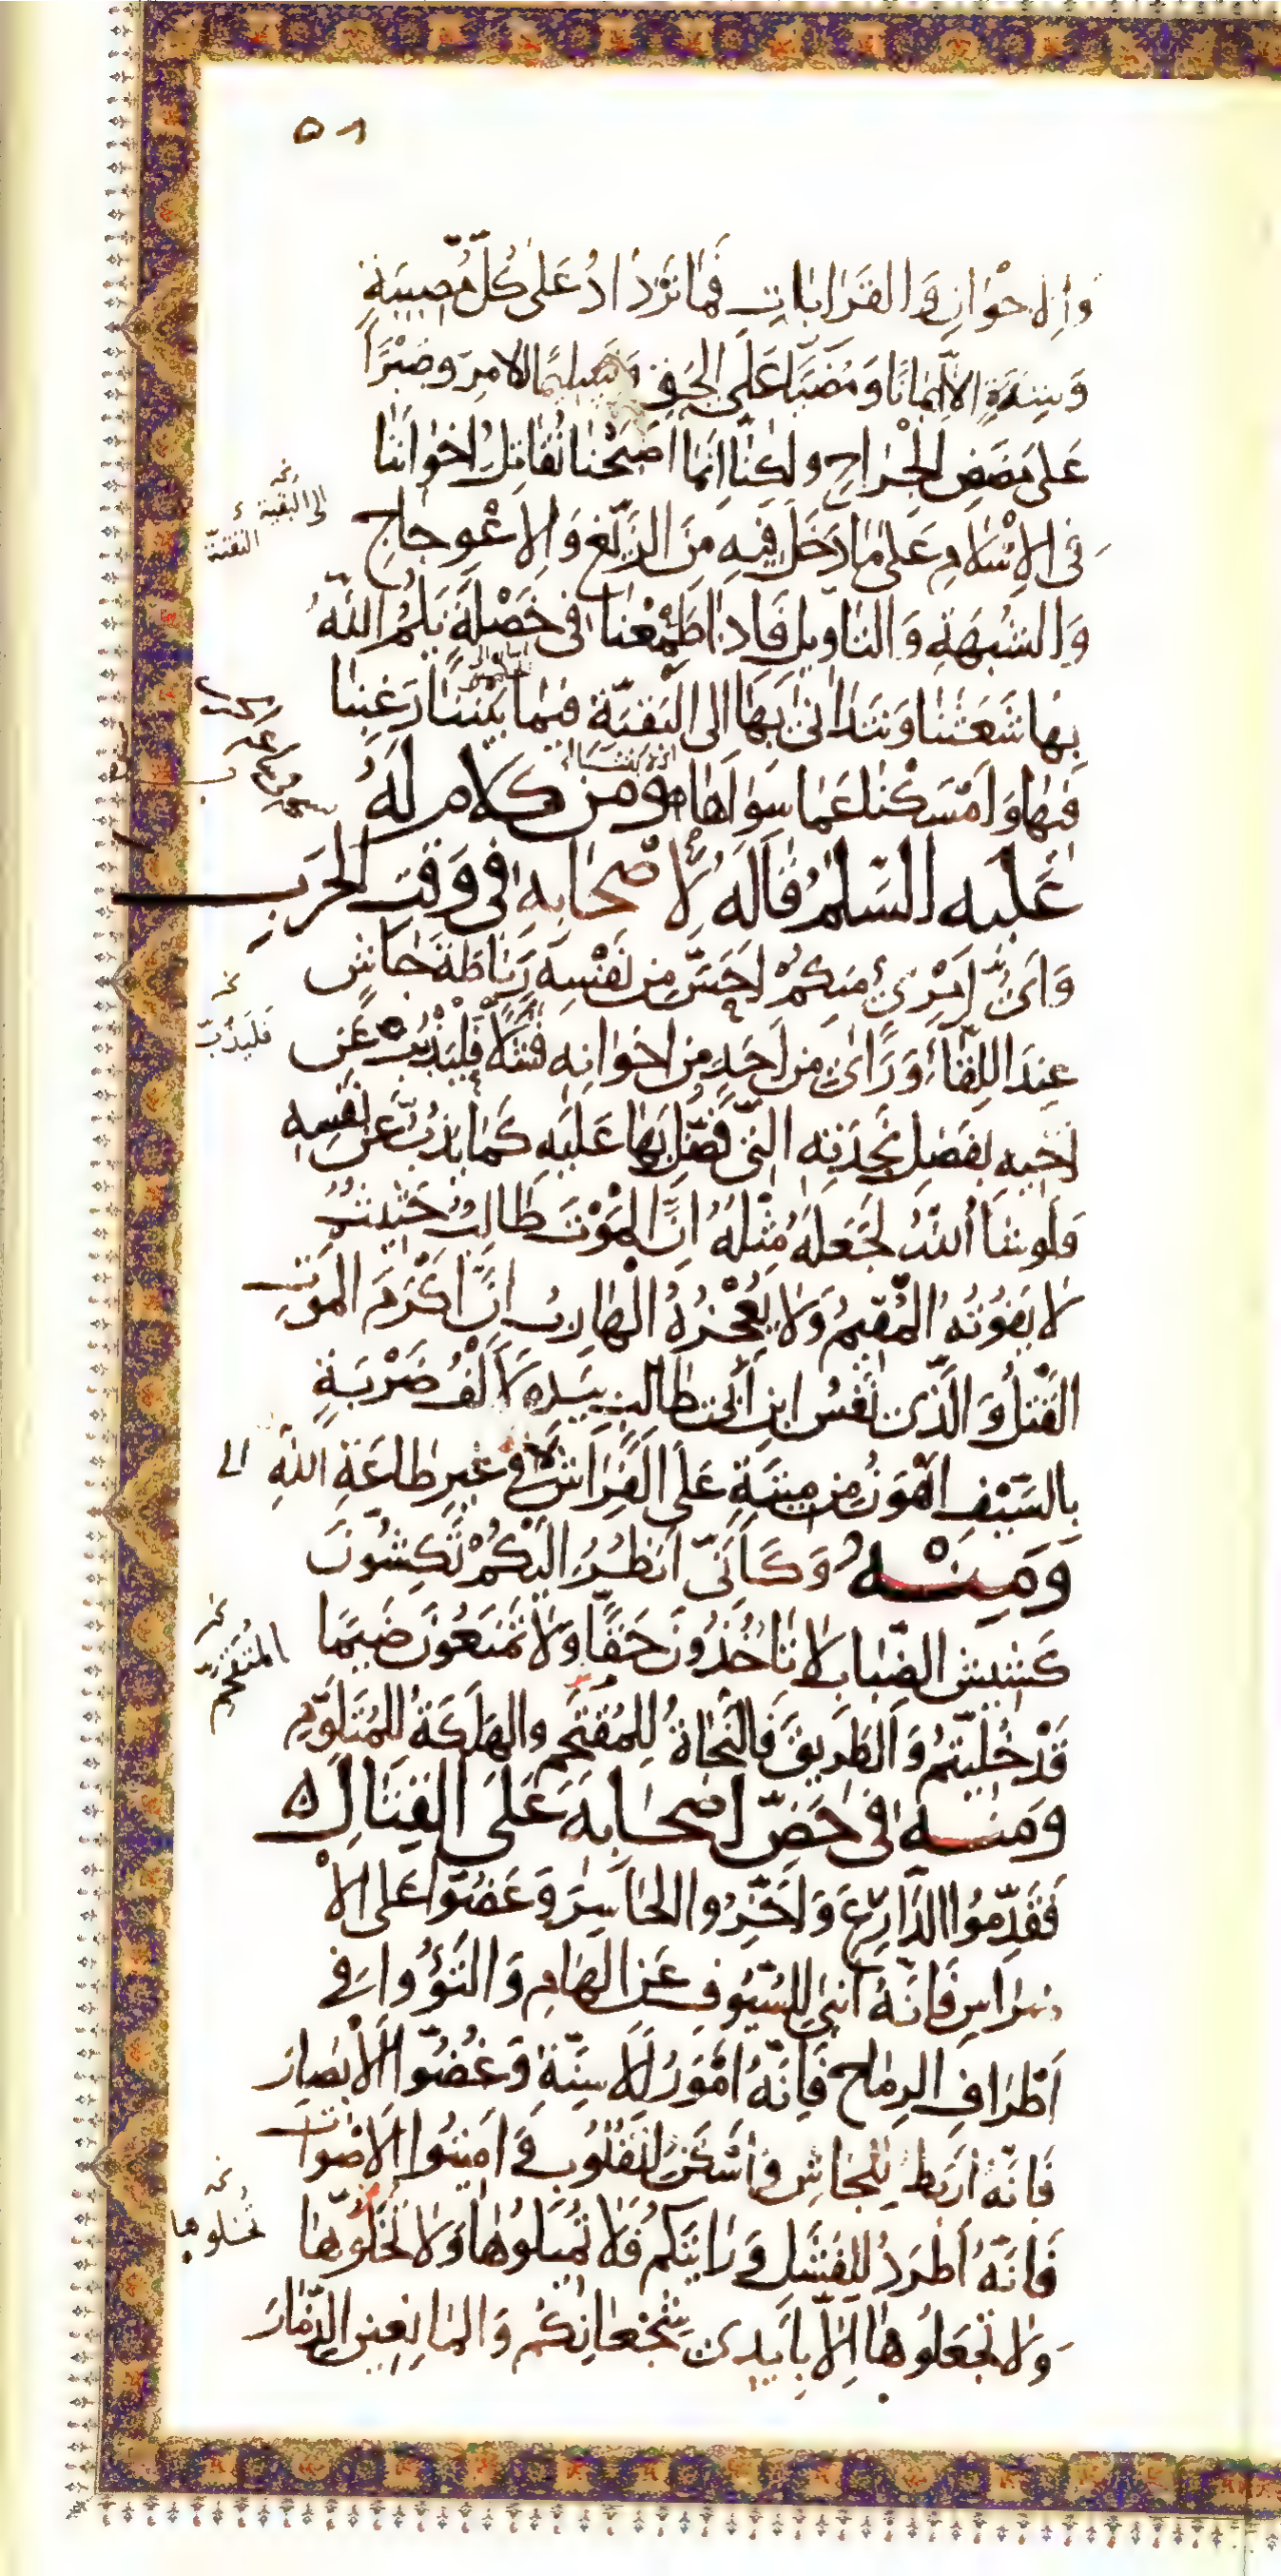 ٥١
وَالاخْوَانِ وَالقَرَابَاتِ فَمَا نَزْدَادُ عَلىٰ كُلِّ مُصِيبَةٍ
وَشِدَّةٍ الّا اِيمَانًا وَمُضِيًّا عَلَى الحَقِّ وَتَسْلِيمًا للامرِ وَصَبْرًا
عَلىٰ مَضَضِ الْجِرَاحِ ولكِنَّا اِنَّمَا اَصْبَحْنَا نُقَاتِلُ اِخْوَانَنَا
فى الاِسْلامِ عَلىٰ مَا دَخَلَ فِيهِ مِنَ الزَّيْغِ وَالاِعْوِجَاجِ
وَالشُبْهَةِ وَالتَاوِيلِ فَاِذَا طَمِعْنَا فى خَصْلَةٍ يَلُمُّ اللّٰهُ
بِهَا شَعَثَنَا وَنَتَدَانىٰ بِهَا الى البَقِيَّة فيمَا بَيْنَنَا رَغِبْنَا
فِيهَا وَاَمْسَكْنَا عَمَّا سِوَاهَا ومن كلام لَهُ
عَلَيهِ السَّلمُ قَالَهُ لِأَصْحَابِهِ فى وَقتِ الحَربِ
وَاَىُّ امْرِئٍ مِنكُمْ اَحَسَّ مِن نَفْسِهِ رَبَاطَةَ جَاشٍ
عِندَ اللِقَاءِ وَرَاَىٰ مِن اَحَدٍ مِن اِخوَانِهِ فَشَلًا فَليَذُبَّ عَن
اَخيهِ بِفَضلِ نَجدَتِهِ الَّتى فُضِّلَ بِهَا عَلَيهِ كَمَا يَذُبُّ عَن نَفسِهِ
فَلَو شَاءَ اللّٰهُ لَجَعَلَهُ مِثْلَهُ اِنَّ المَوْتَ طَالِبٌ حَثِيثٌ
لا يَفُوتُهُ المُقِيمُ وَلا يُعْجِزُهُ الْهَارِبُ اِنَّ اَكْرَمَ المَوتِ
القَتْلُ وَالَّذى نَفسُ ابنِ اَبى طالبٍ بِيَدِهِ لَاَلْفُ ضَرْبَةٍ
بِالسَّيْفِ اَهْوَنُ مِن مِيتَةٍ عَلَى الفِرَاشِ فى غيرِ طَاعَةِ اللّٰهِ
وَمِنْهُ وَكَاَنّى اَنظُرُ اِلَيْكُمْ تَكِشُّونَ
كَشِيشَ الضِّبَابِ لا تَاخُذُونَ حَقًّا وَلا تَمْنَعُونَ ضَيمًا
قَدْ خُلِّيتُمْ وَالطَرِيقَ فَالنَّجَاةُ لِلمُقتَحِمِ وَالهَلَكَةُ لِلمُتَلَوِّمِ
وَمنه فى حَضِّ اَصحَابِهِ عَلَى القِتَالِ
فَقَدِّمُوا الدَّارِعَ وَاَخِّرُوا الحَاسِرَ وَعَضُّوا عَلى الاَ
ضرَاسِ فَاِنَّهُ اَنبىٰ لِلسُّيُوفِ عَنِ الهَامِ وَالتَوُوا فى
اَطْرَافِ الرِمَاحِ فَاِنَّهُ اَمْوَرُ لِلاَسِنَّةِ وَغُضُّوا الاَبْصَارَ
فَانّهُ اَربَطُ لِلجَاشِ وَاَسْكَنُ لِلْقُلُوبِ وَ اَمِيتُوا الاَصْوَاتَ
فَانَّهُ اَطرَدُ لِلفَشَلِ وَ رَايَتَكُم فَلا تُمِيلُوهَا وَلا تُخَلُّوهَا
وَلا تَجْعَلُوهَا اِلّا بِاَيدى شُجْعَانِكُم وَالمَانِعِينَ الذِّمَارَ
الى البقية
فَليَذُبّ
المُتَقَحِّم